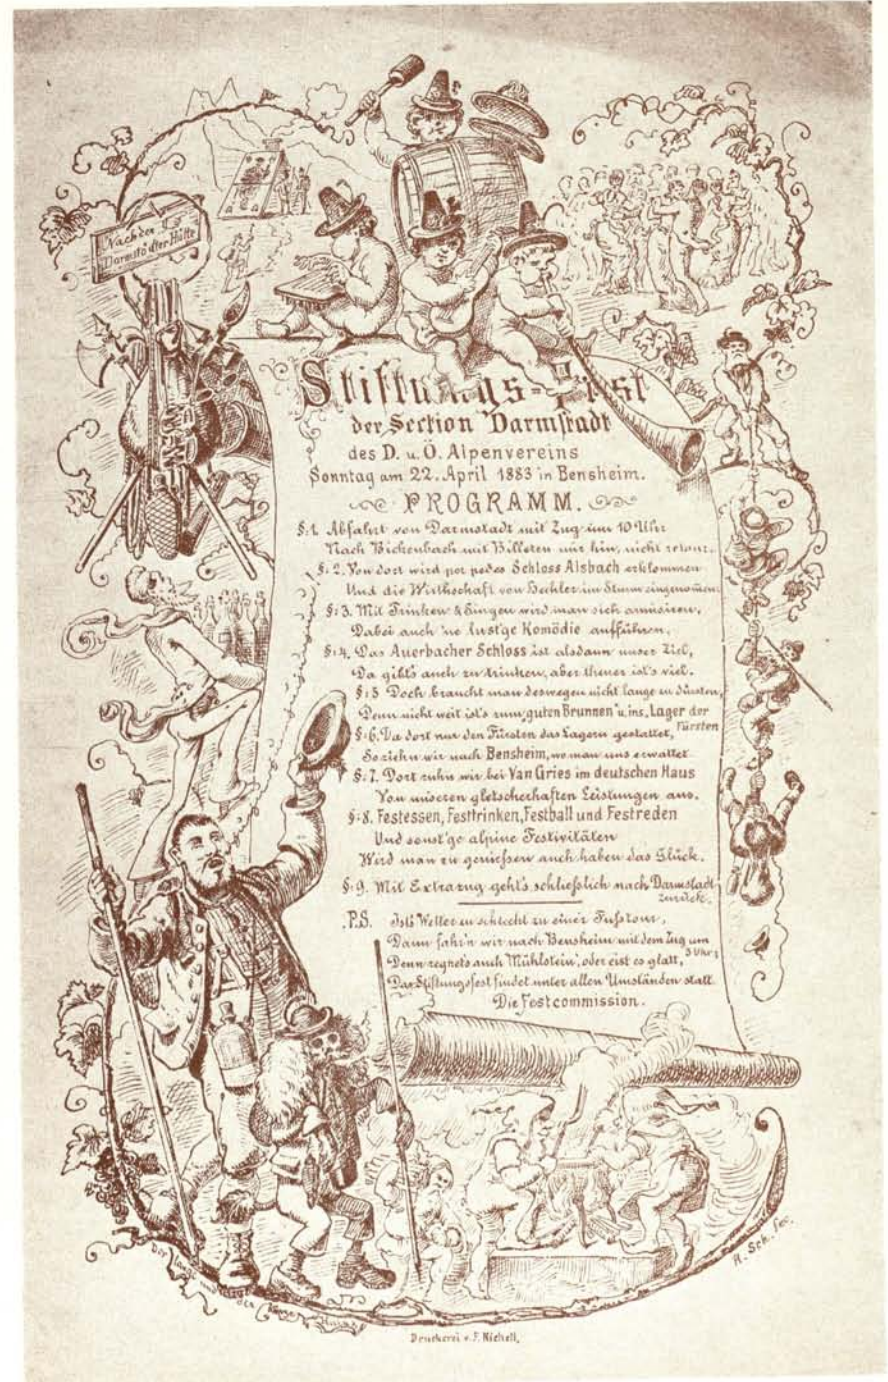 Nach der
Darmstädter Hütte
Stiftungs-Fest
der Section Darmstadt
des D. u. Ö. Alpenvereins
Sonntag am 22. April 1883 in Bensheim.
PROGRAMM.
§:1. Abfahrt von Darmstadt mit Zug um 10 Uhr
Nach Bickenbach mit Billeten nur hin, nicht retour.
§:2. Von dort wird per pedes Schloss Alsbach erklommen
Und die Wirthschaft von Hechler im Sturm eingenommen.
§:3. Mit Trinken & Singen wird man sich amüsiren,
Dabei auch 'ne lust'ge Komödie aufführen.
§:4. Das Auerbacher Schloss ist alsdann unser Ziel,
Da gibt's auch zu trinken, aber theuer ist's viel.
§:5 Doch braucht man deswegen nicht lange zu dürsten,
Denn nicht weit ist's zum „guten Brunnen" u. ins „Lager der Fürsten
§:6. Da dort nur den Fürsten das Lagern gestattet,
So ziehn wir nach Bensheim, wo man uns erwartet.
§:7. Dort ruhn wir bei Van Gries im deutschen Haus
Von unseren gletscherhaften Leistungen aus.
§:8. Festessen, Festtrinken, Festball und Festreden
Und sonst'ge alpine Festivitäten
Wird man zu geniessen auch haben das Glück.
§:9. Mit Extrazug geht's schliesslich nach Darmstadt zurück.
P.S. Ist's Wetter zu schlecht zu einer Fusstour,
Dann fahr'n wir nach Bensheim mit dem Zug um 3 Uhr;
Denn regnet's auch Mühlstein', oder eist es glatt,
Das Stiftungsfest findet unter allen Umständen statt.
Die Festcommission.
der lange und der
H. Sch. fec.
Druckerei v. F. Nichell.